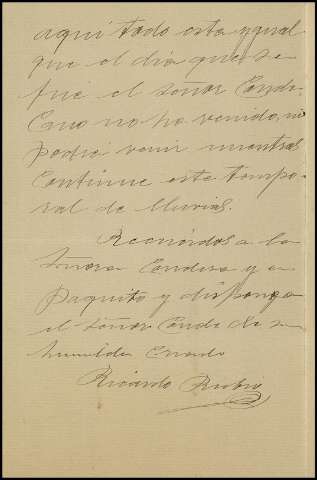 aqui todo esta ygual
que el dia que se
fué el señor Conde.
Como no ha venido, ni
podrá venir mientras
continue este tempo-
ral de lluvias.
Recuérdos a la
señora Condesa y a
Paquito y disponga
el señor Conde de su
humilde Criado
Ricardo Rubio